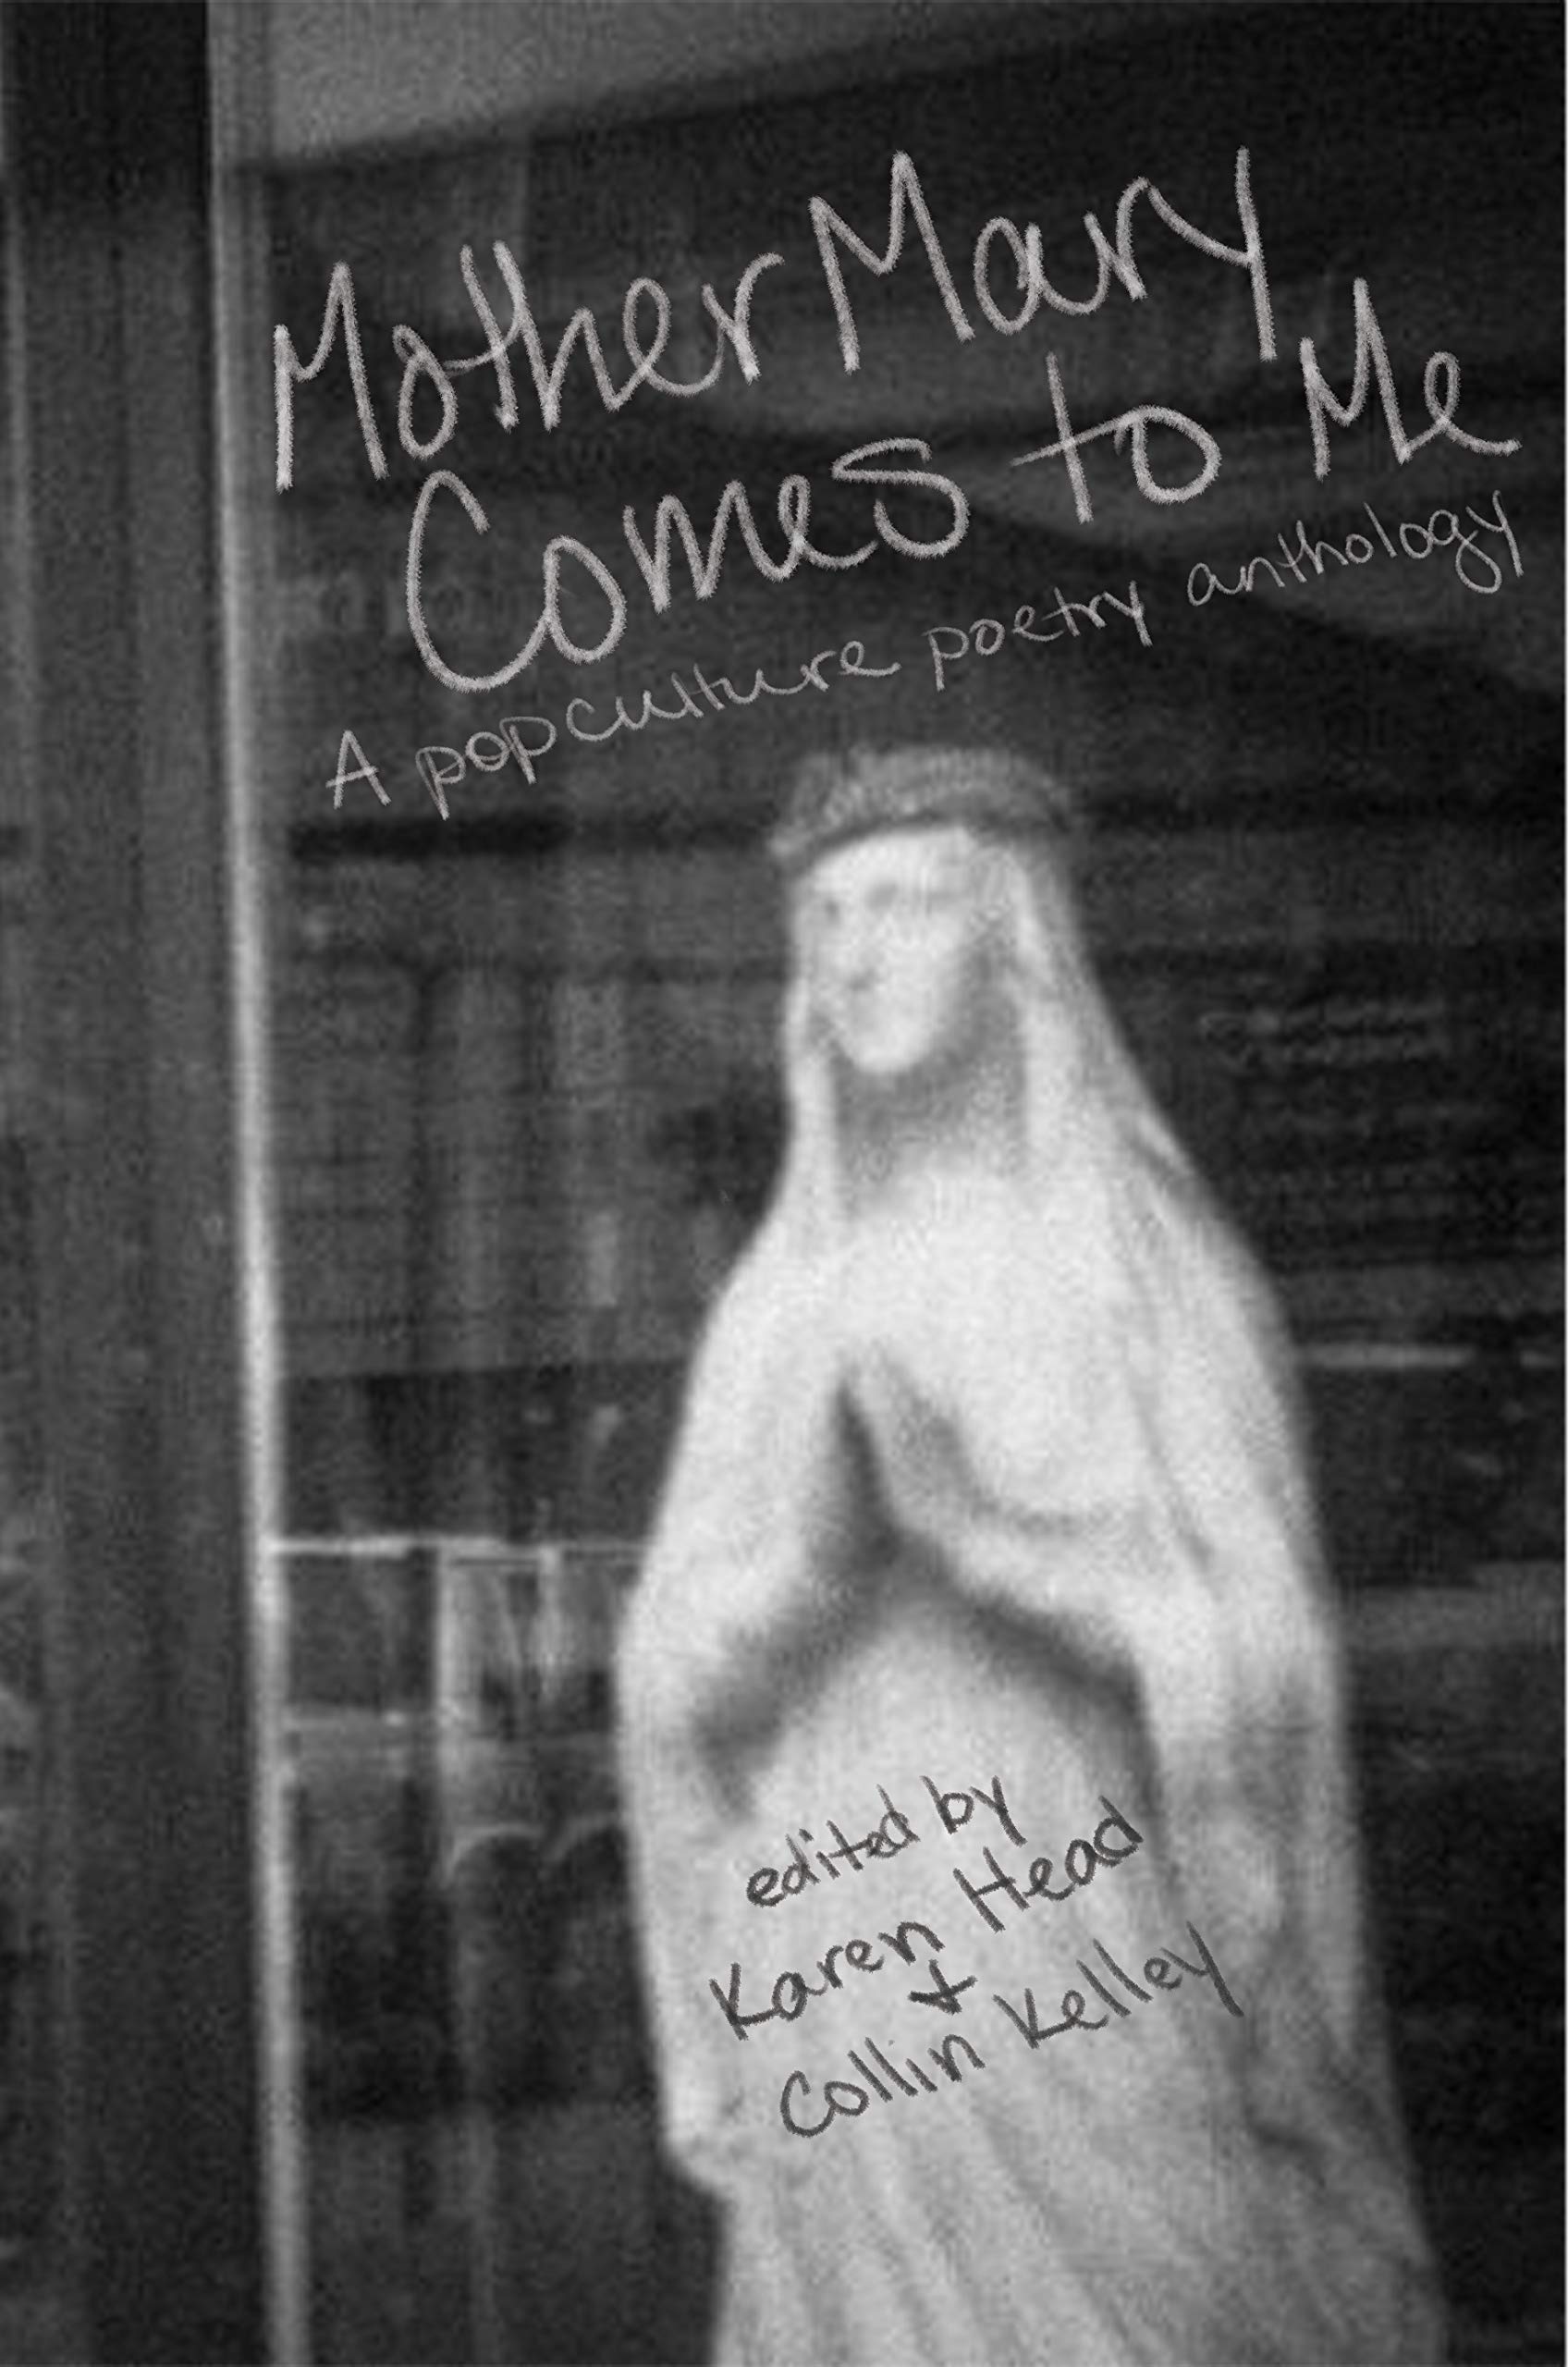 Mother Mary
Comes to Me
A pop culture poetry anthology
edited by
Karen Head
+
Collin Kelley